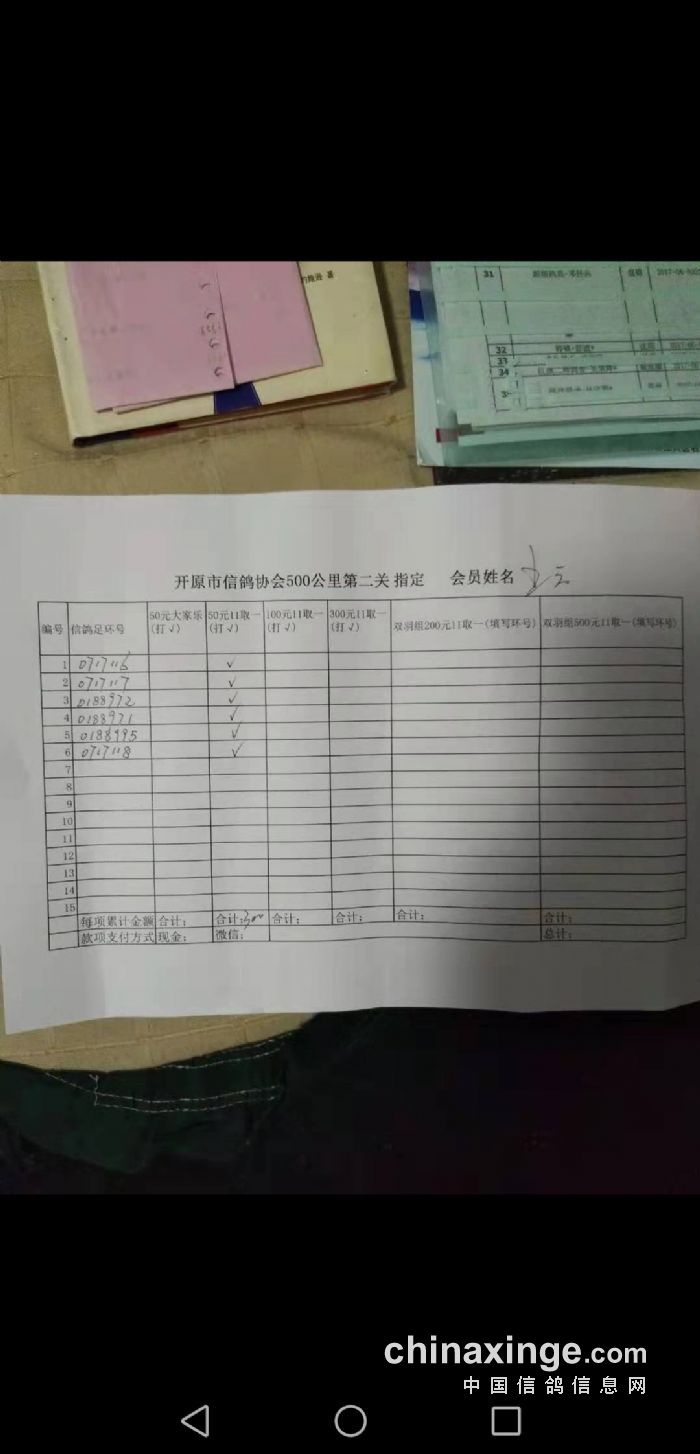 31
32
33
34
开原市信鸽协会500公里第二关 指定 会员姓名
编号 信鸽足环号 50元大家乐(打√) 50元11取一(打√) 100元11取一(打√) 300元11取一(打√) 双羽组200元11取一(填写环号) 双羽组500元11取一(填写环号)
1 0717116 √
2 0717117 √
3 0188972 √
4 0188971 √
5 0188995 √
6 0717118 √
7
8
9
10
11
12
13
14
15
每项累计金额 合计: 合计:300 合计: 合计: 合计: 合计:
款项支付方式 现金: 微信: 总计:
chinaxinge.com
中国信鸽信息网